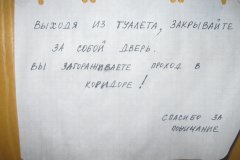 ВЫХОДЯ ИЗ ТУАЛЕТА, ЗАКРЫВАЙТЕ
ЗА СОБОЙ ДВЕРЬ.
ВЫ ЗАГОРАЖИВАЕТЕ ПРОХОД В
КОРИДОРЕ!
СПАСИБО ЗА
ПОНИМАНИЕ